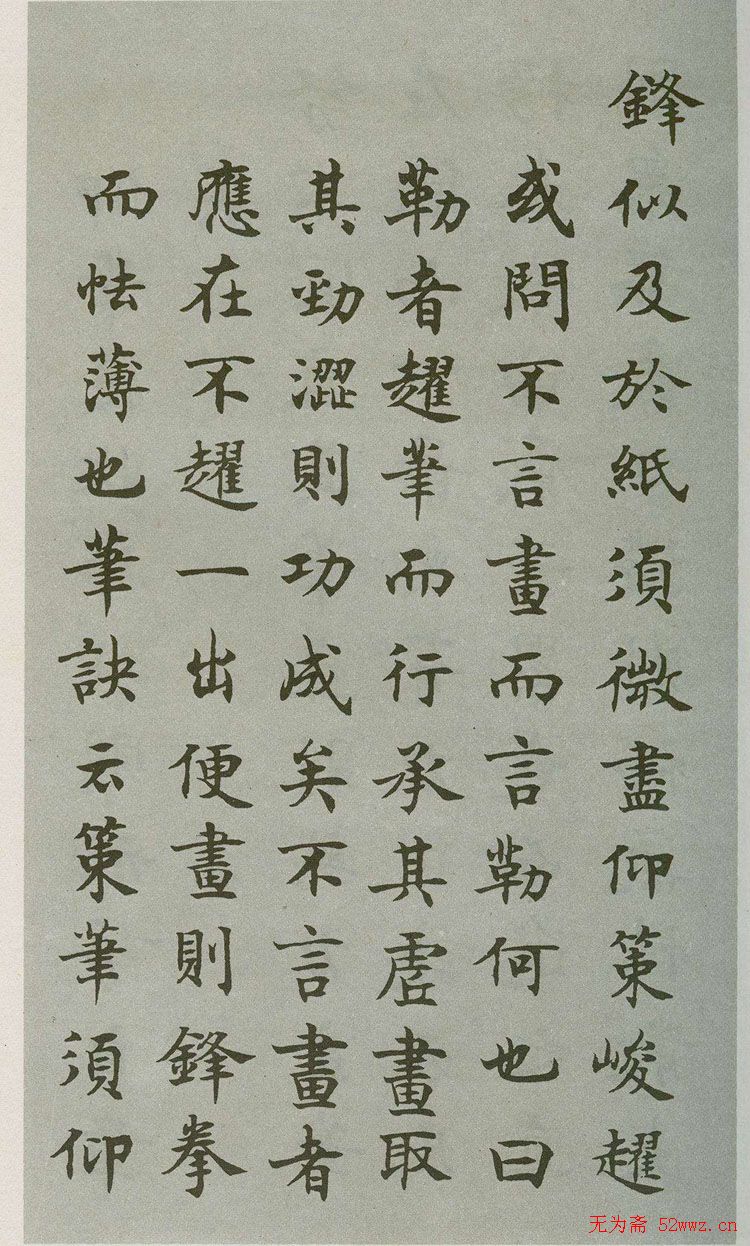 鋒似及於紙須微盡仰策峻趯
或問不言畫而言勒何也曰
勒者趯筆而行承其虛畫取
其勁澀則功成矣不言畫者
應在不趯一出便畫則鋒拳
而怯薄也筆訣云策筆須仰
无为斋 52wwz.cn